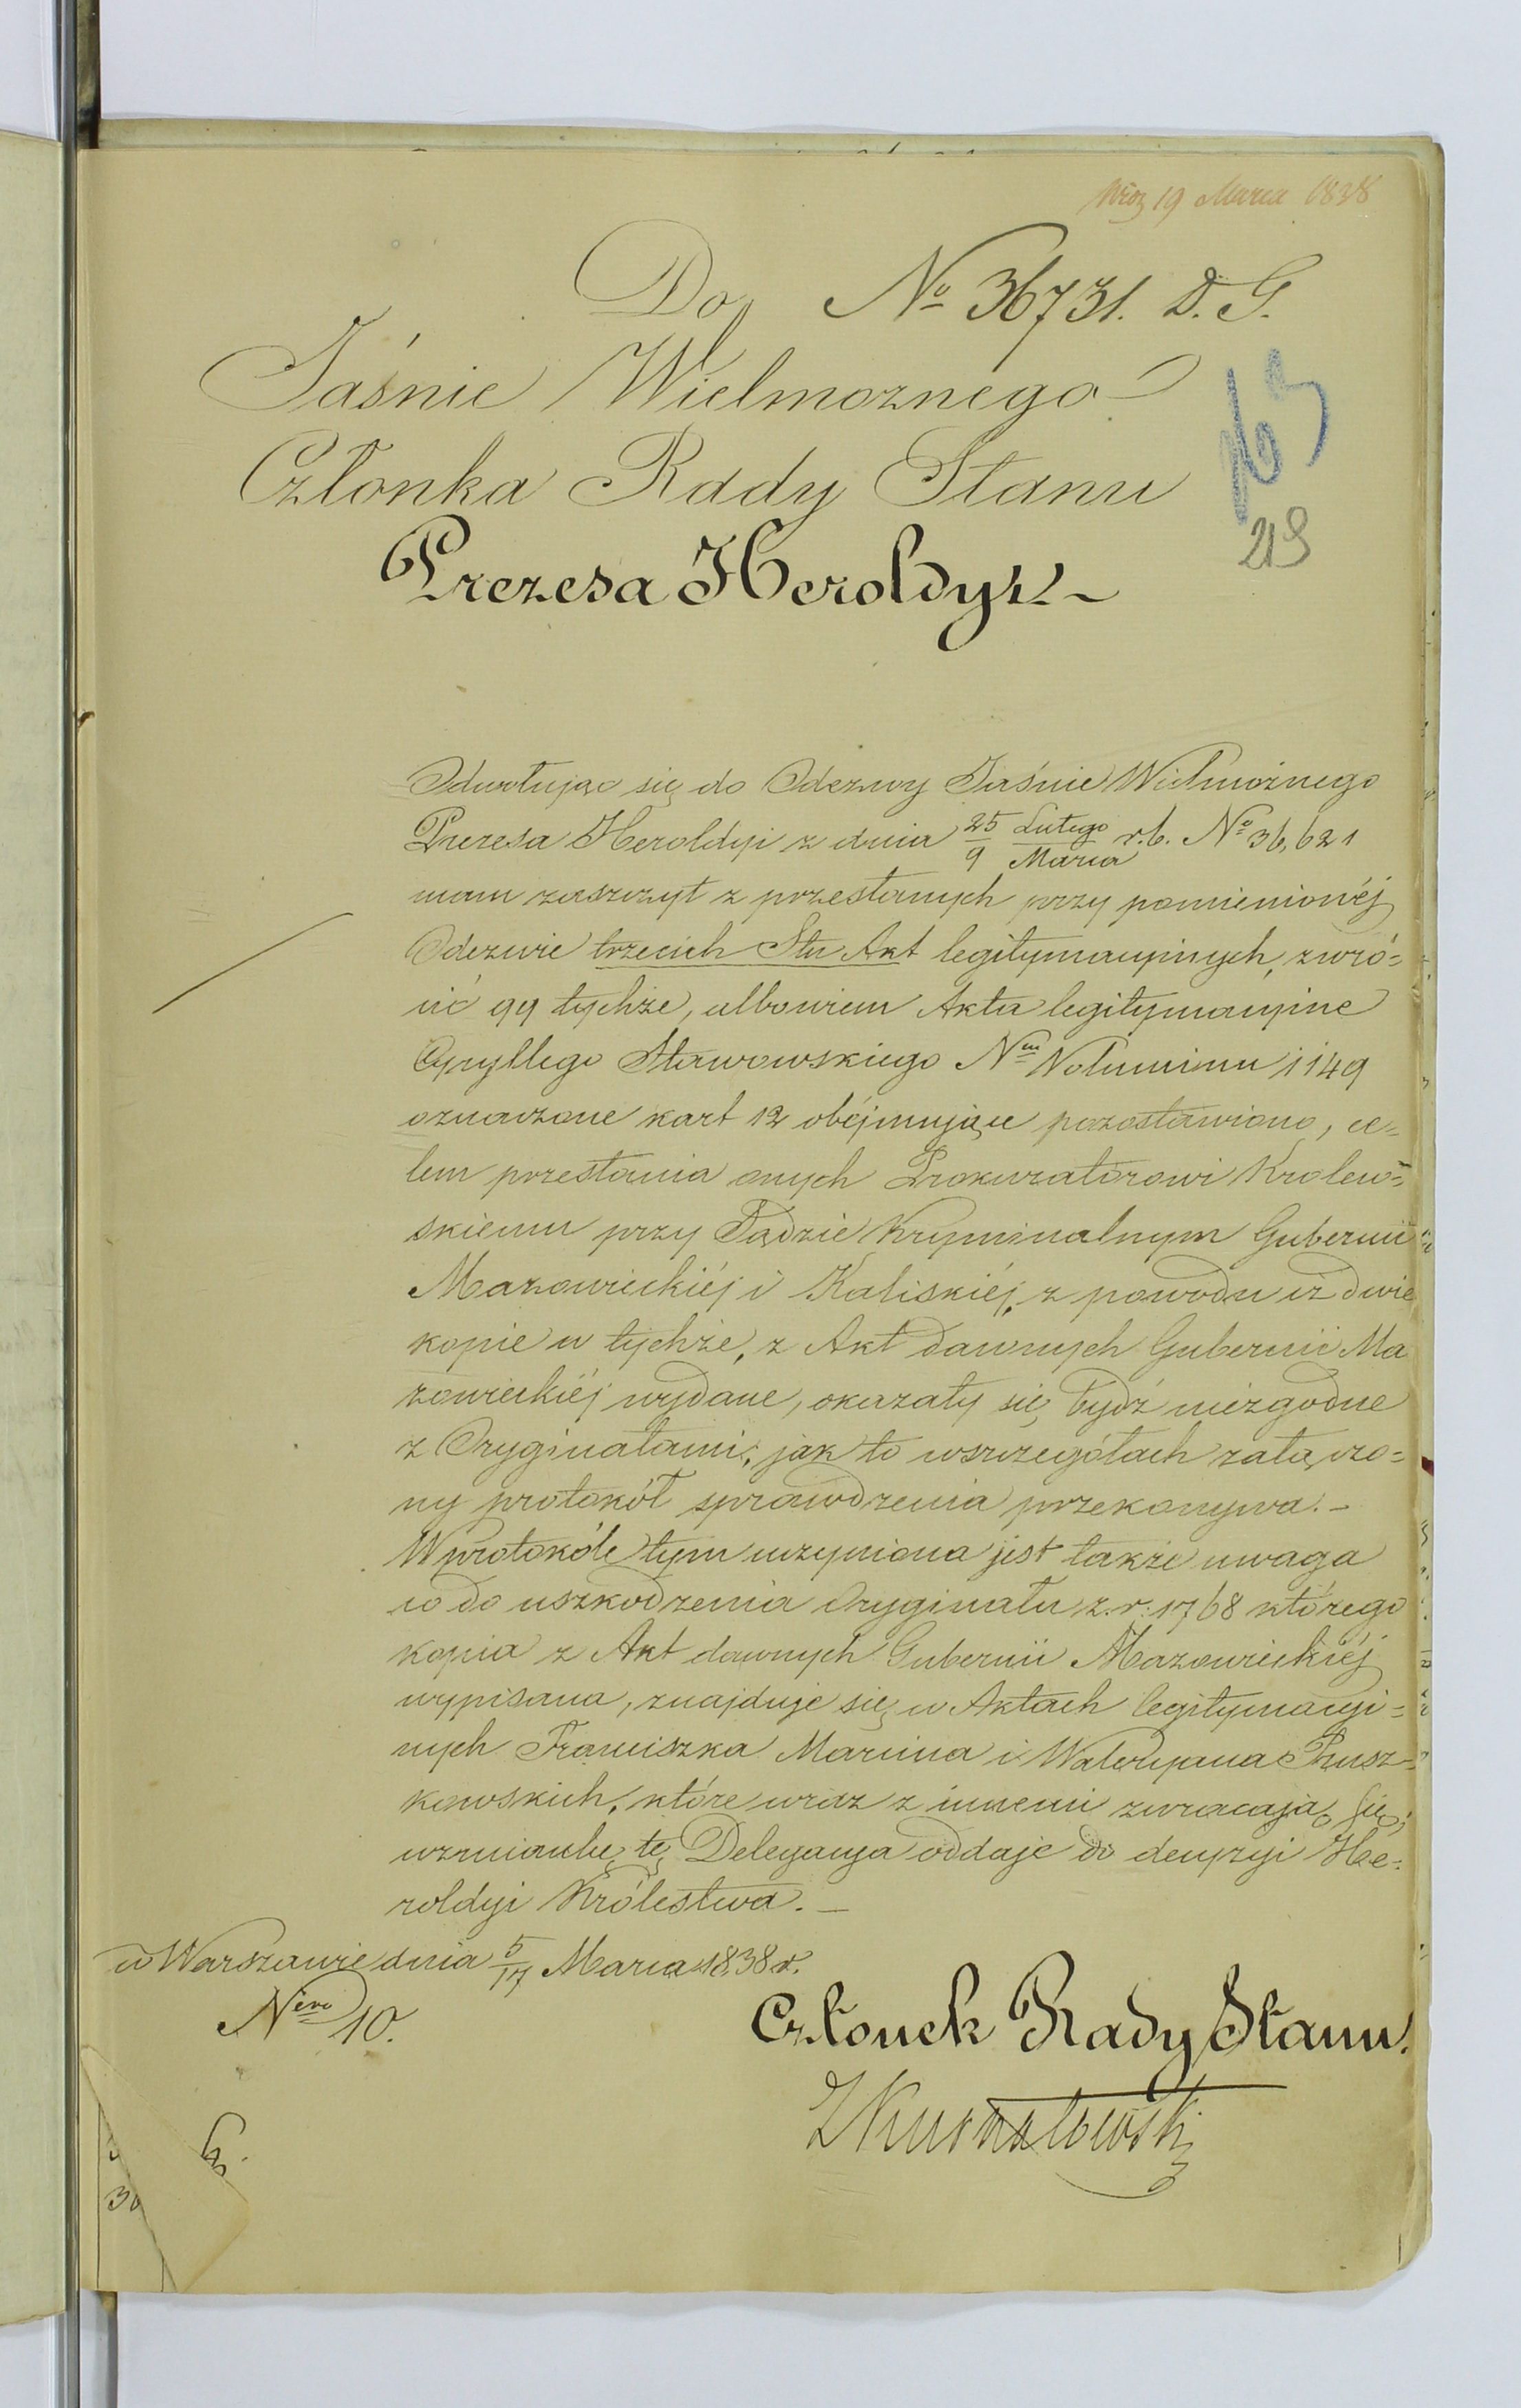 19 Marca 1838
Do No 36731. D. G.
Jaśnie Wielmoznego
Członka Rady Stanu
Prezesa Heroldyi
213
Odwołując się do Odezwy Jaśnie Wielmożnego
Prezesa Heroldyi z dnia 25/9 Lutego/Marca r.b. No 36,621
mam zaszczyt z przesłanych przy pomienionéj
Odezwie trzecich Stu Akt legitymacyinych, zwró=
cić 99 tychże, albowiem Akta legitymacyine
Cyryllego Stawowskiego Nem Voluminu 1149
oznaczone kart 12 obéjmujące pozostawiono, ce=
lem przesłania onych Prokuratorowi Krolew=
skiemu przy Sądzie Kryminalnym Gubernii
Mazowieckiéj i Kaliskiéj, z powodu iż dwie
kopie w tychże, z Akt dawnych Gubernii Ma
zowieckiéj wydane, okazały się bydź niezgodne
z Oryginałami, jak to wszczegółach załączo=
ny protokół sprawdzenia przekonywa. -
W protokóle tym uczyniona jest także uwaga
co do uszkodzenia Oryginału z r: 1768 którego
kopia z Akt dawnych Gubernii Mazowieckiéj
wypisana, znajduje się w Aktach legitymacyi=
nych Franciszka Marcina i Waleryana Prusz=
kowskich, które wraz z innemi zwracają się;
wzmiankę tę Delegacya oddaje do decyzyi He=
roldyi Królestwa. -
w Warszawie dnia 5/17 Marca 1838 r.
Nero 10.
Członek Rady Stanu.
30